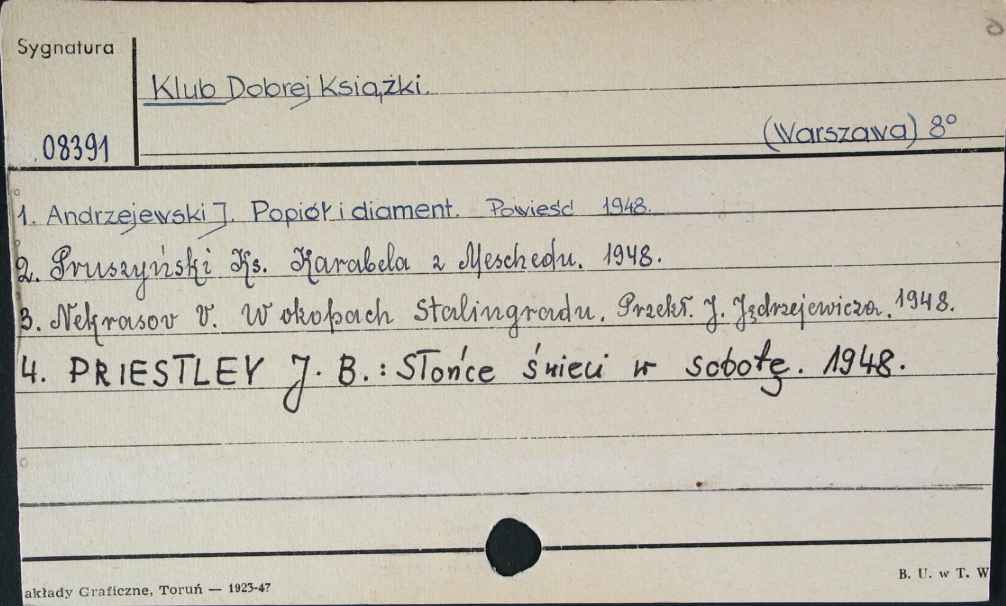 Sygnatura
Klub Dobrej Książki.
(Warszawa) 8°
08391
1. Andrzejewski J. Popiół i diament. Powieść 1948.
2. Pruszyński Ks. Karabela z Meschedu. 1948.
3. Nekrasov V. W okopach Stalingradu. Przekł. J. Jędrzejewicza. 1948.
4. PRIESTLEY J. B.: Słońce świeci w sobotę. 1948.
akłady Graficzne, Toruń — 1923-47
B. U. w T. W